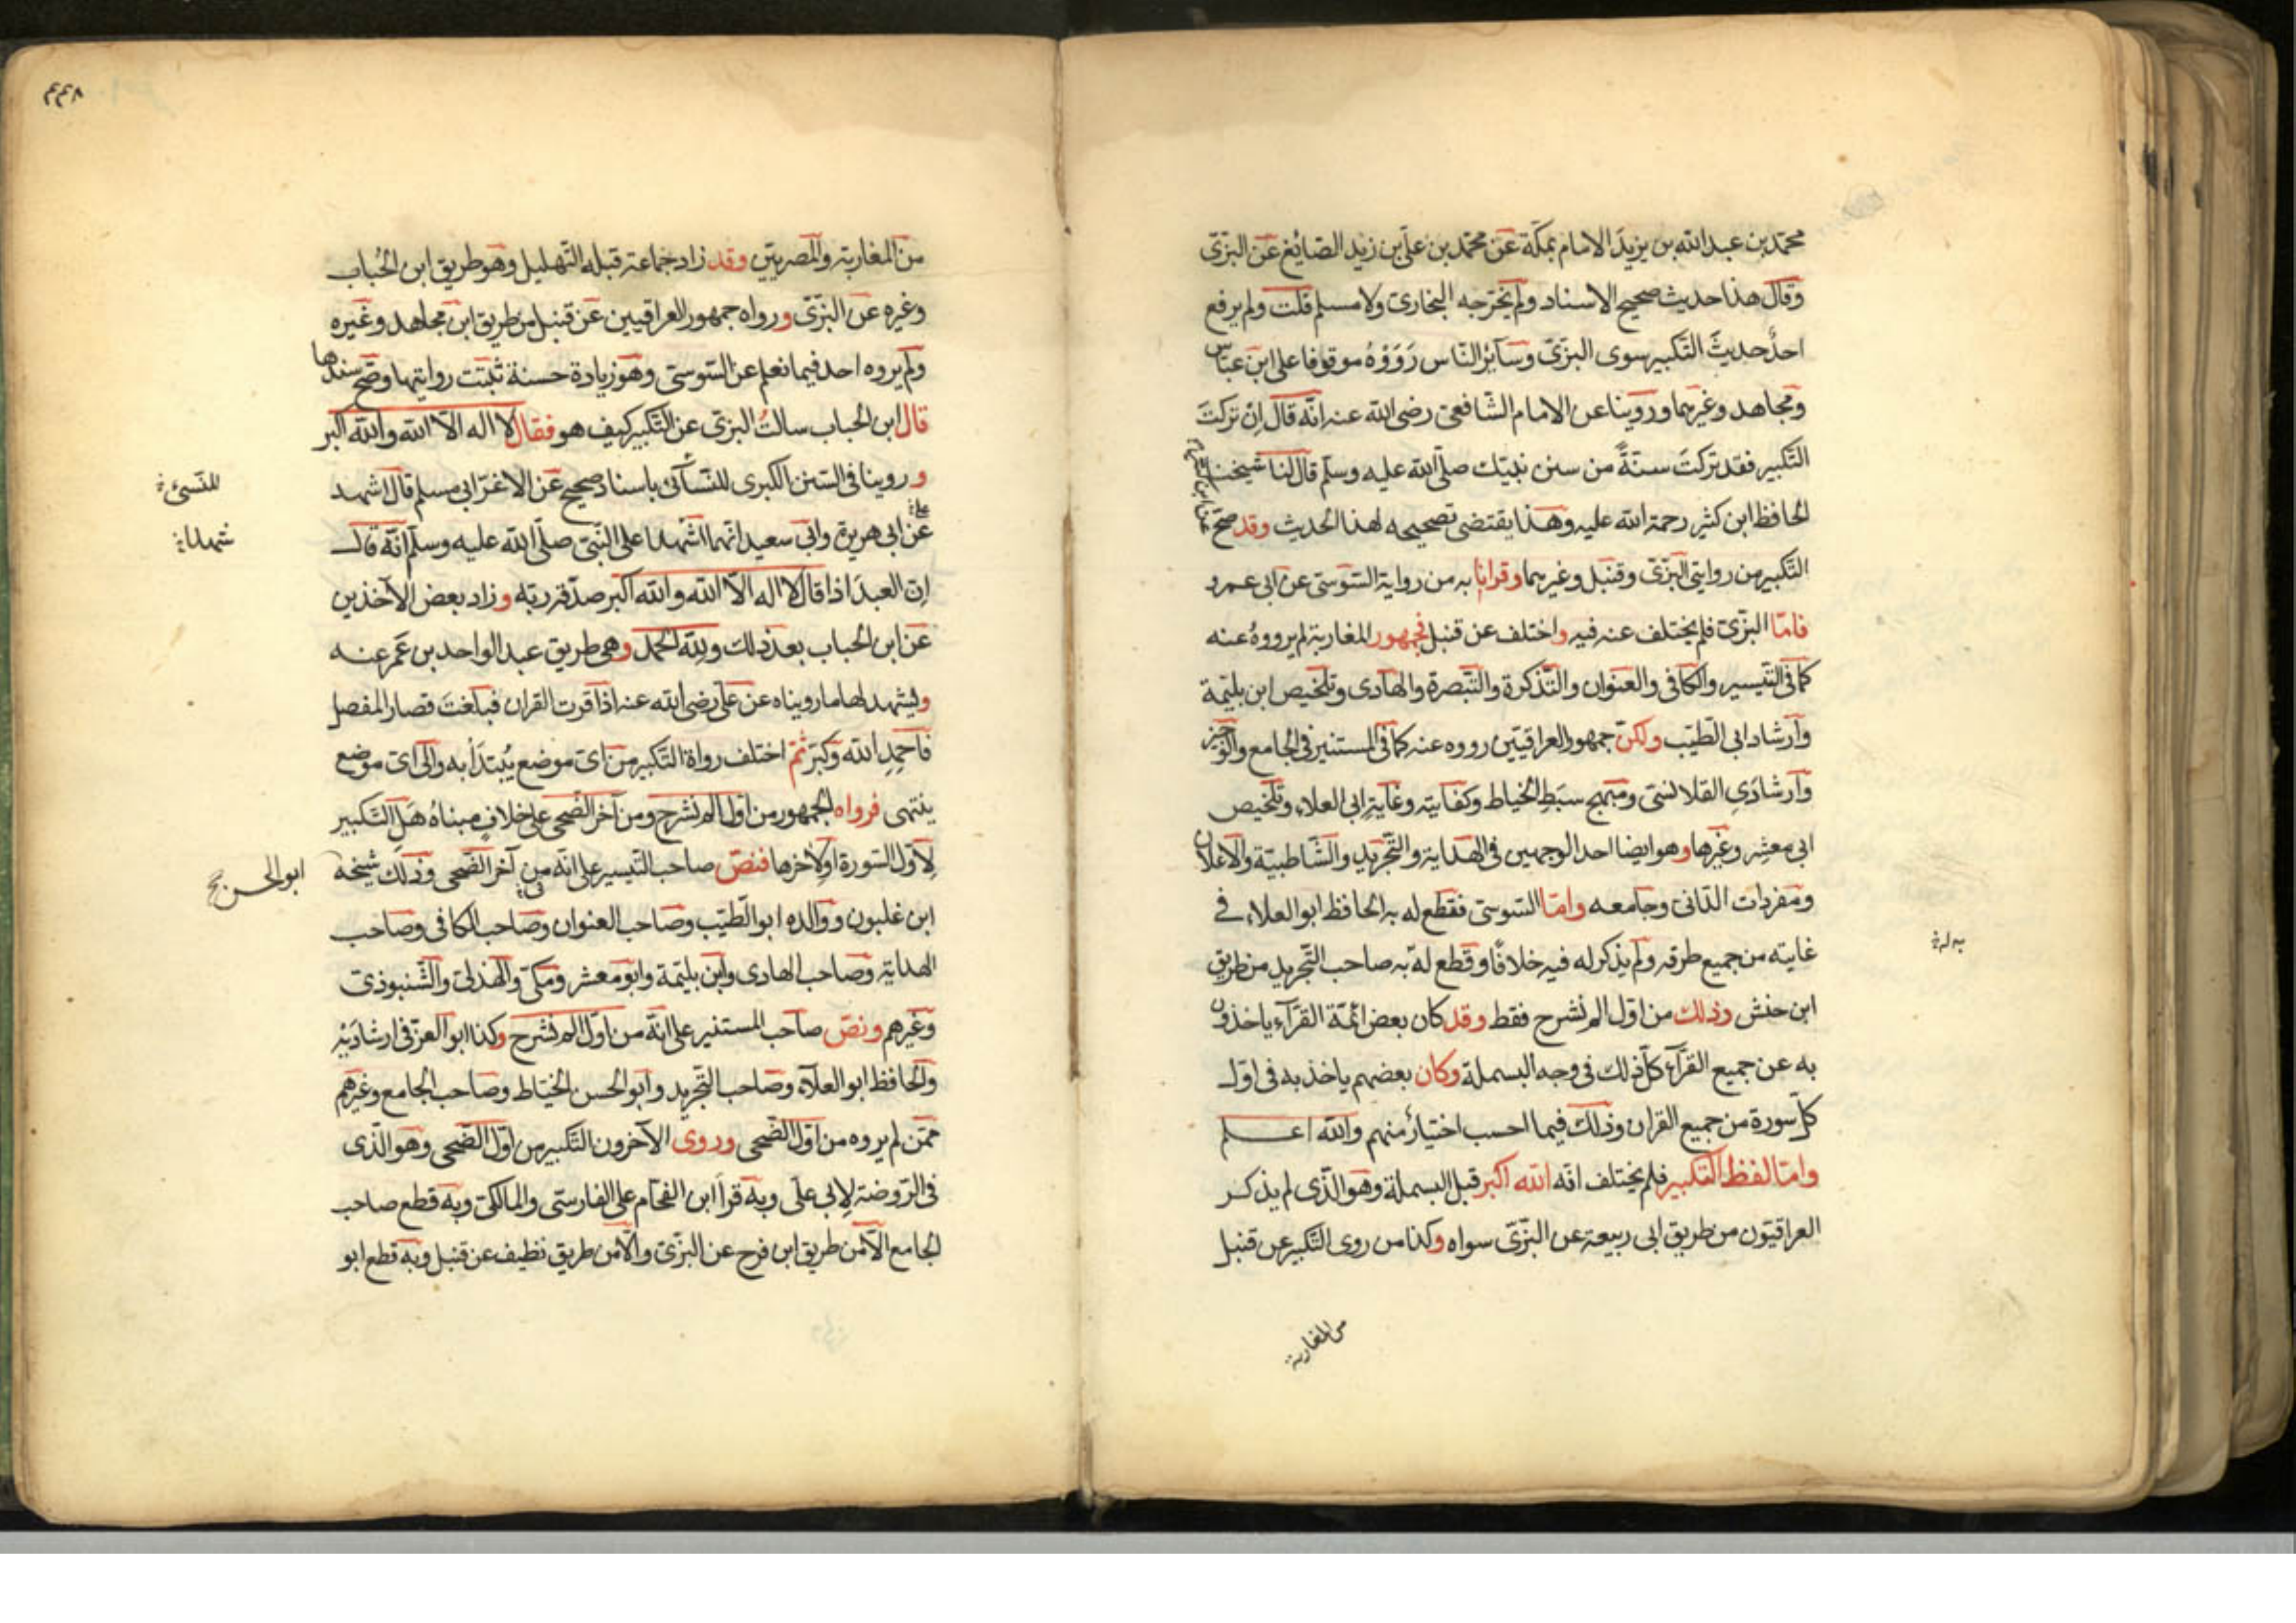 محمّد بن عبد الله بن يزيد الامام بمكّة عن محمّد بن علي بن زيد الصّايغ عن البزّى
وقال هذا حديث صحيح الاسناد ولم يخرّجه البخارى ولا مسلم قلت ولم يرفع
احدٌ حديثَ التّكبير سوى البزّى وسآئر النّاس رَوَوْهُ موقوفا على ابن عبّاس
ومجاهد وغيرهما وروّينا عن الامام الشّافعى رضى الله عنه انّه قال اِنْ تركتَ
التّكبير فقد تركتَ سنّةً من سنن نبيّك صلّى الله عليه وسلّم قال لنا شيخنا
الحافظ ابن كثير رحمة الله عليه وهذا يقتضى تصحيحه لهذا الحديث وقد صحّ
التّكبير من روايتى البزّى وقنبل وغيرهما وقرانا به من رواية السّوسى عن ابى عمرو
فامّا البزّى فلم يختلف عنه فيه واختلف عن قنبل فجمهور المغاربة لم يرووهُ عنه
كما فى التّيسير والكافى والعنوان والتّذكرة والتّبصرة والهادى وتلخيص ابن بليّمة
وآرشاد ابى الطّيّب ولكنّ جمهور العراقيّين رووه عنه كما فى المستنير فى الجامع والوجيز
وآرشادَىِ القلانسىّ ومبهج سبط الخياط وكفايته وغاية ابى العلاء وتلخيص
ابى معشِر وغيرها وهو ايضا احد الوجهين فى الهداية والتّجريد والشّاطبيّة والاعلان
ومفردات الدّانى وجامعه وامّا السّوسى فقطع له به الحافظ ابو العلاء فى
غايته من جميع طرقه ولم يذكر له فيه خلافًا وقطع له به صاحب التّجريد من طريق
ابن حبش وذلك من اوّل الم نشرح فقط وقد كان بعض ائمّة القرّآء ياخذون
به عن جميع القرّآء كلّ ذلك فى وجه البسملة وكان بعضهم ياخذ به فى اوّل
كلّ سورة من جميع القران وذلك فيما احسب اختيارٌ منهم والله اعلم
وامّا لفظ التكبير فلم يختلف انّه الله اكبر قبل البسملة وهو الّذى لم يذكر
العراقيّون من طريق ابى ربيعة عن البزّىّ سواه وكذا من روى التّكبير عن قنبل
من المغاربة
به له
٤٤٨
من المغاربة والمصريّين وقد زاد جماعة قبله التّهليل وهو طريق ابن الحُباب
وغيره عن البزّى ورواه جمهور العراقيين عن قنبل من طريق ابن مجاهد وغيره
ولم يروه احد فيما نعلم عن السّوسى وهو زيادة حسنة ثبتت روايتها وصحّ سندها
قال ابن الحُباب سالتُ البزّى عن التّكبير كيف هو فقال لا اله الّا الله والله اكبر
وروينا فى السّنن الكبرى للنّسآئى باسناد صحيح عن الاغرّ ابى مسلم قال اشهد
عن ابى هريرة وابى سعيد انّهما اشهدا على النّبىّ صلّى الله عليه وسلّم انّه قال
اِنّ العبدَ اذا قال لا اله الّا الله والله اكبر صدّقه ربّه وزاد بعض الآخذين
عن ابن الحُباب بعد ذلك ولله الحمد وهى طريق عبد الواحد بن عمر عنه
ويشهد لها ما رويناه عن علىّ رضى الله عنه اذا قرت القران فبلغتَ قصار المفصل
فاحمدِ الله وكبّر ثمّ اختلف رواة التّكبير من اىّ موضع يُبتدَأ به والى اىّ موضع
ينتهى فرواه الجمهور من اوّل الم نشرح ومن آخر الضّحى على خلافٍ مبناهُ هَلِ التّكبير
لاَوّل السّورة او لآخرها فنصّ صاحب التّيسير على انّه من آخر الضّحى وذلك شيخه
ابن غلبون ووالده ابو الطّيّب وصاحب العنوان وصاحب الكافى وصاحب
الهداية وصاحب الهادى وابن بليّمة وابو معشر ومكّى والهذلىّ والشّنبوذى
وغيرهم ونصّ صاحب المستنير على انّه من اوّل الم نشرح وكذا ابو العزّ فى ارشادَيْه
والحافظ ابو العلآء وصاحب التّجريد وابو الحسن الخيّاط وصاحب الجامع وغيرهم
ممّن لم يروه من اوّل الضّحى وروى الآخرون التّكبير من اوّل الضّحى وهو الّذى
فى الرّوضة لابى على وبه قرأ ابن الفحّام على الفارسى والمالكى وبه قطع صاحب
الجامع الّا من طريق ابن فرح عن البزّى والّا من طريق نظيف عن قنبل وبه قطع ابو
للنّسئى
شهدا
ابو الحسن